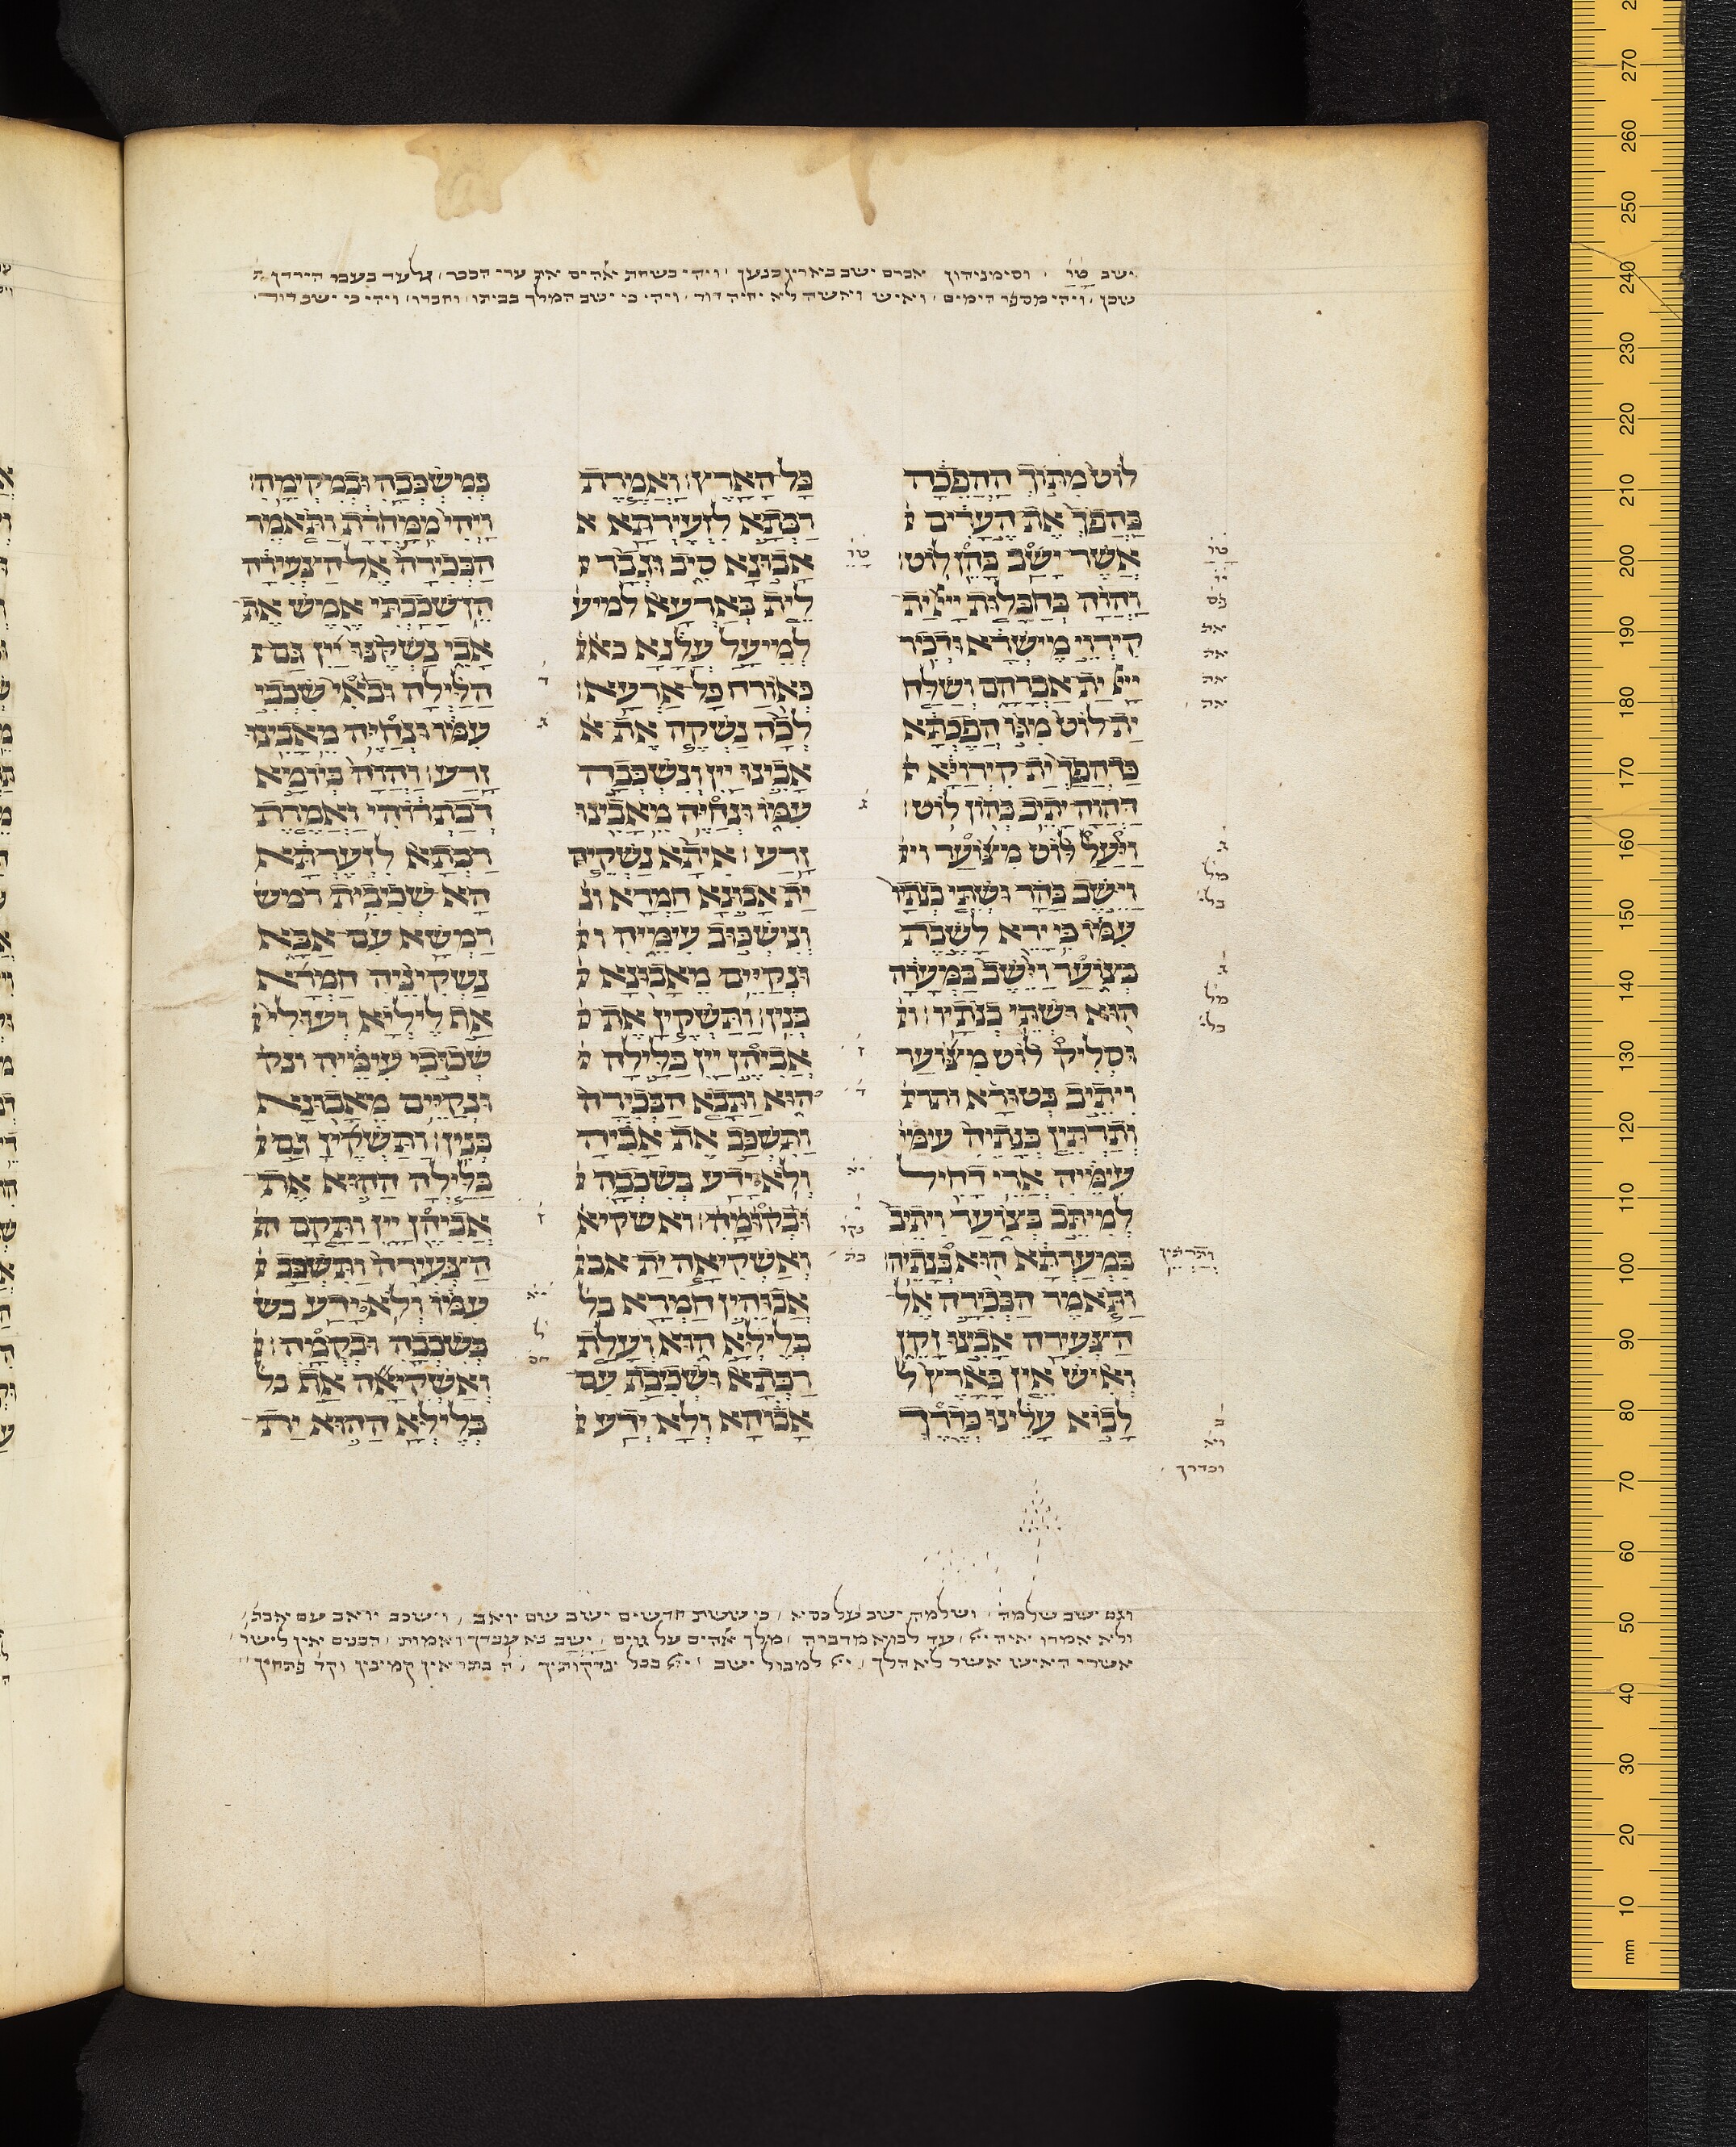 ישב טו וסימניהון אברם ישב בארץ כנען ויהי בשחת אהים את ערי הככר גלעד בעבר הירדן
שכן ויהי מספר הימים ואיש ואשה לא יחיה דוד ויהי כי ישב המלך בביתו וחברו ויהי כי ישב דוד
לוֹט מתוך ההפכה
בהפך את הערים
אשר ישב בהן לוט
והוה בחבלות ייי ית
קירוי מישרא ודכר
ייי ית אברהם ושלח
ית לוט מגו הפכתא
כדהפך ית קירויא
דהוה יתיב בהון לוט
ויעל לוט מצוער וי
וישב בהר ושתי בנתיו
עמו כי ירא לשבת
בצוער וישב במערה
הוא ושתי בנתיו ו
וסליק לוט מצוער
ויתיב בטורא ותר
ותרתין בנתיה עימי
עימיה ארי דחיל
למיתב בצוער ויתיב
במערתא הוא בנתיה
ותאמר הבכירה אל
הצעירה אבינו זקן
ואיש אין בארץ ל
לבוא עלינו כדרך
כל הארץ ואמרת
רבתא לזעירתא א
אבונא סיב וגבר
לית בארעא למיע
למיעל עלנא כא
כאורח כל ארעא
לכה נשקה את א
אבינו יין ונשכבה
עמו ונחיה מאבינו
זרע איתא נשקיה
ית אבונא חמרא ונ
ונישכוב עימיה ו
ונקיים מאבונא
בנין ותשקין את
אביהן יין בלילה
הוא ותבא הבכירה
ותשכב את אביה
ולא ידע בשכבה
ובקומה ואשקיא
ואשקיאה ית אבו
אבוהין חמרא בל
בליליא הוא ועלת
רבתא ושכבת עם
אבוהא ולא ידע
במישכבה ובמקימה
ויהי ממחרת ותאמר
הבכירה אל הצעירה
הן שכבתי אמש את
אבי נשקנו יין גם
הלילה ובאי שכבי
עמו ונחיה מאבינו
זרע והוה ביומא
דבתרוהי ואמרת
רבתא לזערתא
הא שכיבית רמש
רמשא עם אבא
נשקיניה חמרא
אף ליליא ועולי
שכובי עימיה ונק
ונקיים מאבונא
בנין ותשקין גם
בלילה ההוא את
אביהן יין ותקם ה
הצעירה ותשכב
עמו ולא ידע בש
בשכבה ובקמה
ואשקיאה את בל
בליליא ההוא ית
וגם ישב שלמה ושלמה ישב על כסא כי ששת חדשים ישב שם יואב וישכב יואב עם אבת
ולא אמרו איה עד לבוא מדברה מלך אהים על גוים ישב נא עבדך ואמות הבנים אין לישר
אשרי האיש אשר לא הלך למבול ישב בכל קמיצין וקל פתחין